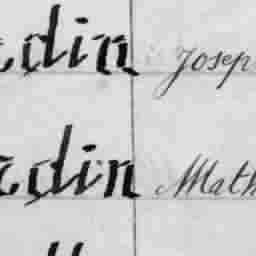 din Josep
din Math